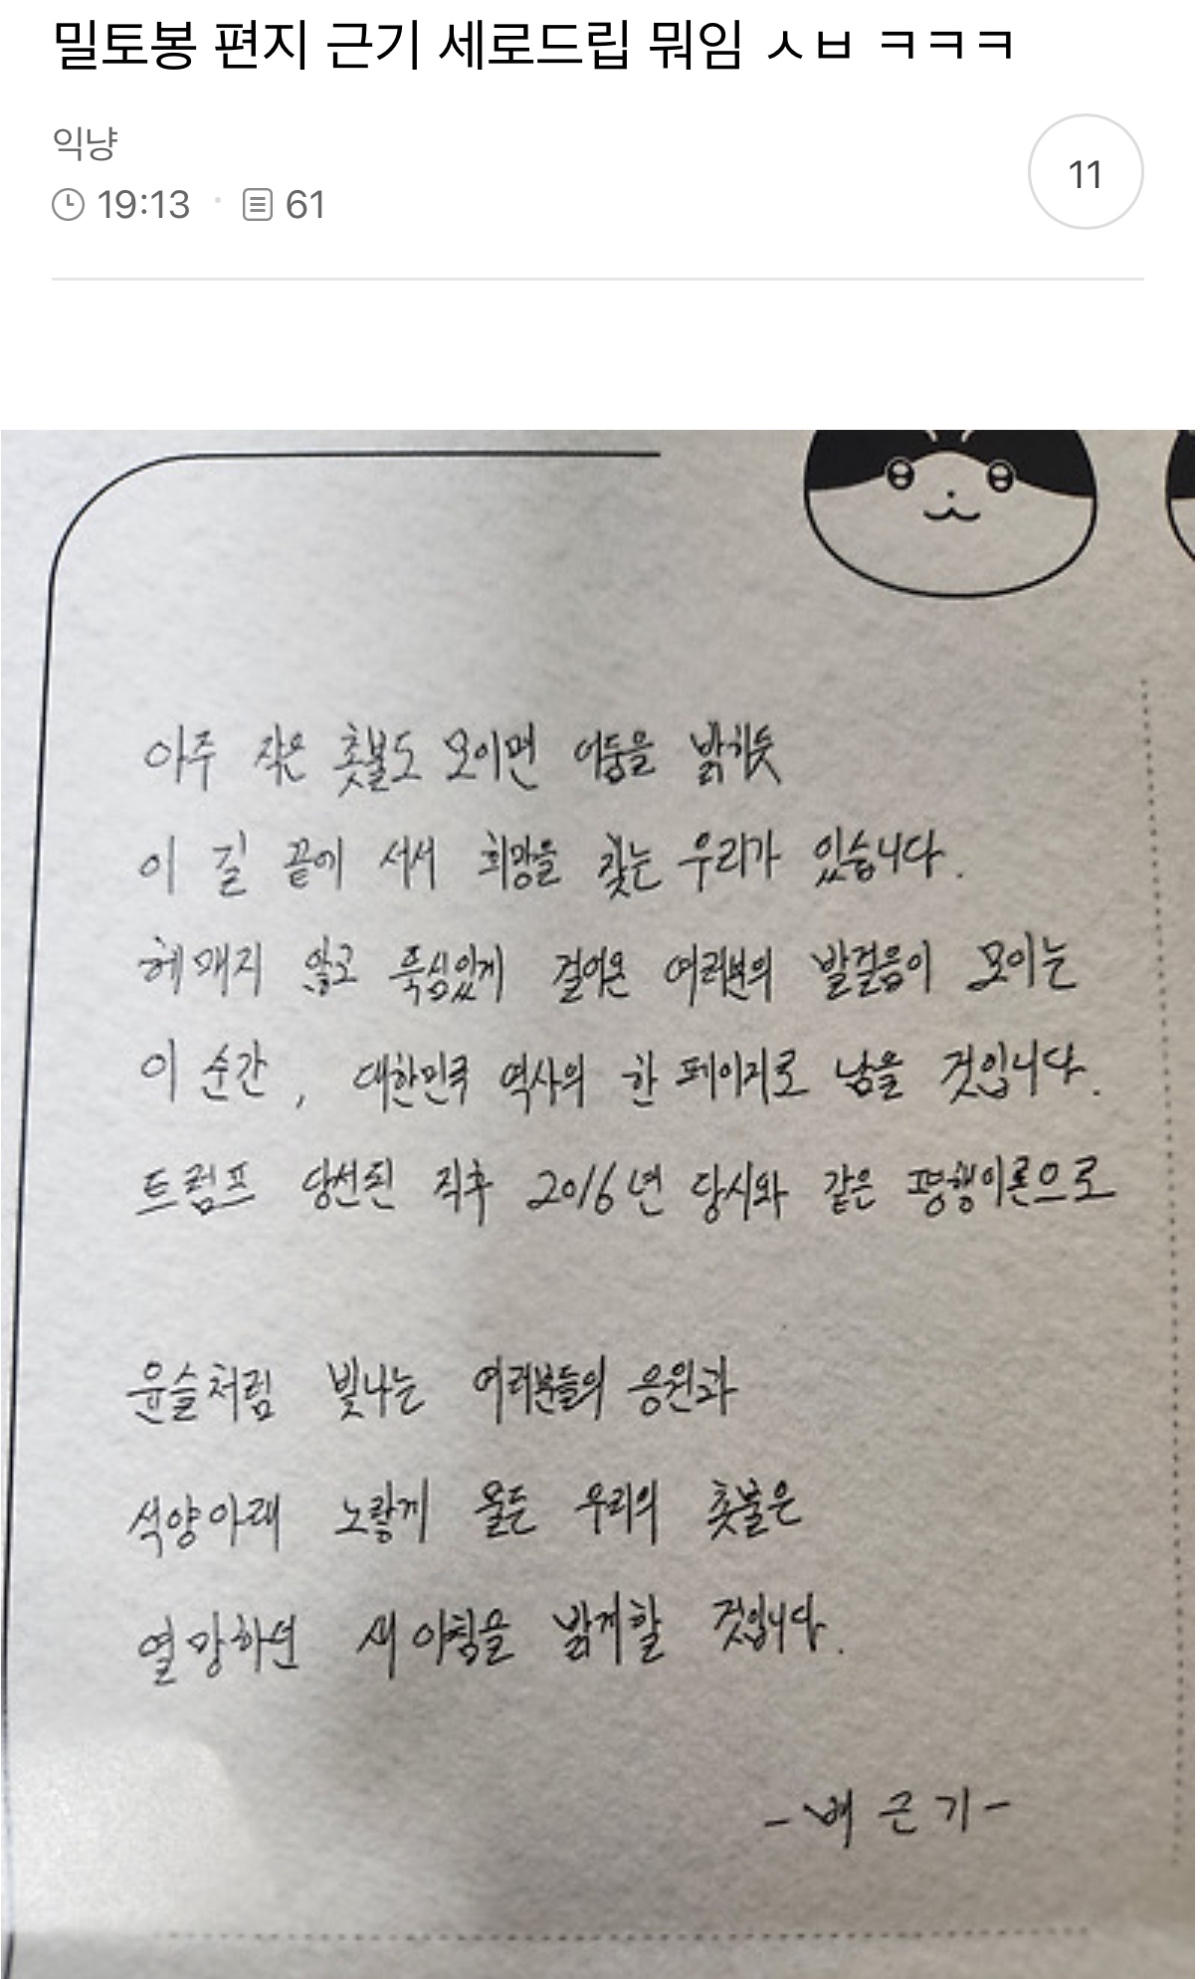 밀토봉 편지 근기 세로드립 뭐임 ㅅㅂ ㅋㅋㅋ
익냥
19:13 · 61
11
아주 작은 촛불도 모이면 어둠을 밝히듯
이 길 끝에 서서 희망을 찾는 우리가 있습니다.
헤매지 않고 뚝심있게 걸어온 여러분의 발걸음이 모이는
이 순간, 대한민국 역사의 한 페이지로 남을 것입니다.
트럼프 당선된 직후 2016년 당시와 같은 평행이론으로
윤슬처럼 빛나는 여러분들의 응원과
석양아래 노랗게 물든 우리의 촛불은
열망하던 새 아침을 밝게할 것입니다.
- 배 근 기 -